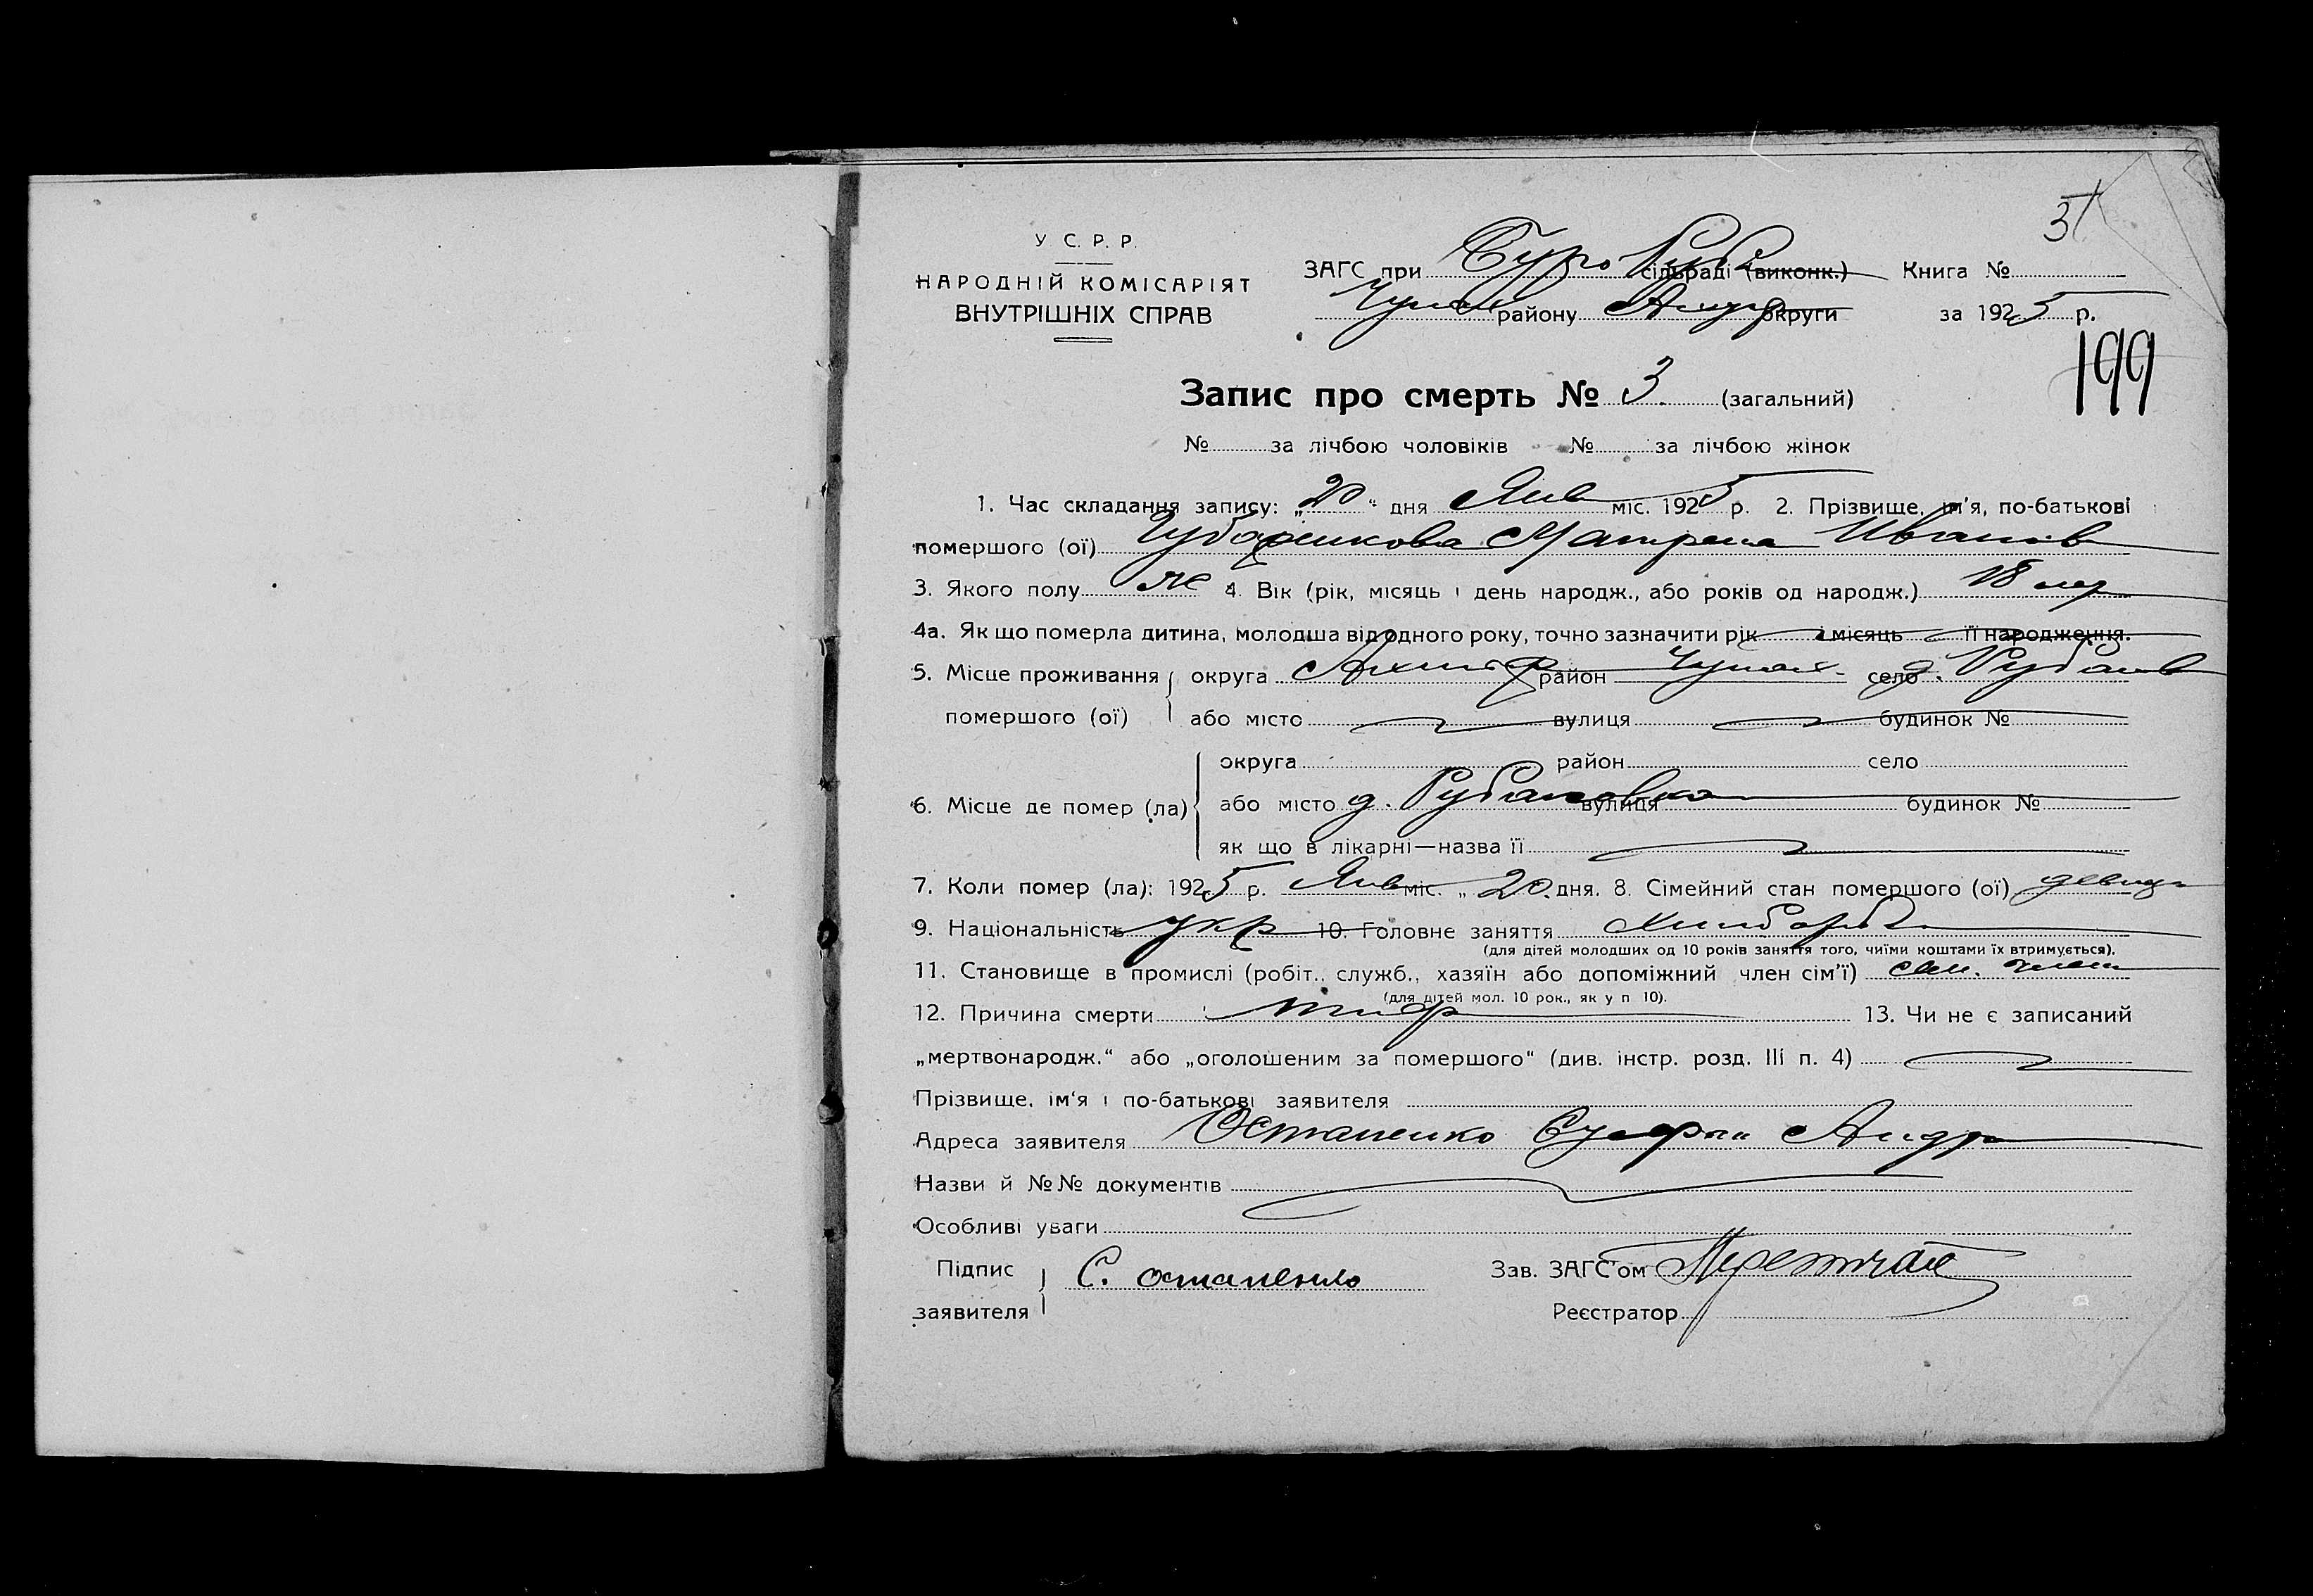 31
У С. Р. Р.
НАРОДНІЙ КОМІСАРІЯТ
ВНУТРІШНІХ СПРАВ
ЗАГС при сільраді (виконк.) Книга №
Чупах району округи за 1925 р.
199
Запис про смерть № 3 (загальний)
№ за лічбою чоловіків № за лічбою жінок
1. Час складання запису: „20“ дня Янв міс. 1925 р. 2. Прізвище, ім'я, по-батькові
помершого (ої) Иванов
3. Якого полу ж 4. Вік (рік, місяць і день народж., або років од народж.) 18 лет
4а. Як що померла дитина, молодша від одного року, точно зазначити рік і місяць її народження.
5. Місце проживання округа Ахтыр район Чупах. село д. Рубанов
помершого (ої) або місто вулиця будинок №
округа район село
6. Місце де помер (ла) або місто д. Рубановка вулиця будинок №
як що в лікарні—назва її
7. Коли помер (ла): 1925 р. Янв міс. „20. дня. 8. Сімейний стан помершого (ої) девица
9. Національність укр 10. Головне заняття хлибороб
(для дітей молодших од 10 років заняття того, чиїми коштами їх втримується).
11. Становище в промислі (робіт., служб., хазяїн або допоміжний член сім'ї) сем. член
(для дітей мол. 10 рок., як у п 10).
12. Причина смерти тиф 13. Чи не є записаний
„мертвонародж.“ або „оголошеним за помершого“ (див. інстр. розд. III п. 4)
Прізвище, ім'я і по-батькові заявителя
Адреса заявителя Остапенко Андр
Назви й №№ документів
Особливі уваги
Підпис С. остапенко Зав. ЗАГС'ом
заявителя Реєстратор